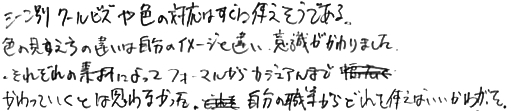 シーン別クールビズや色の対応はすぐに使えそうである。
色の見え方の違いは自分のイメージと違い、意識がかわりました。
・それぞれの素材によってフォーマルからカジュアルまで
かわっていくとは思わなかった。自分の職業からどれて使えばいいかわかって。